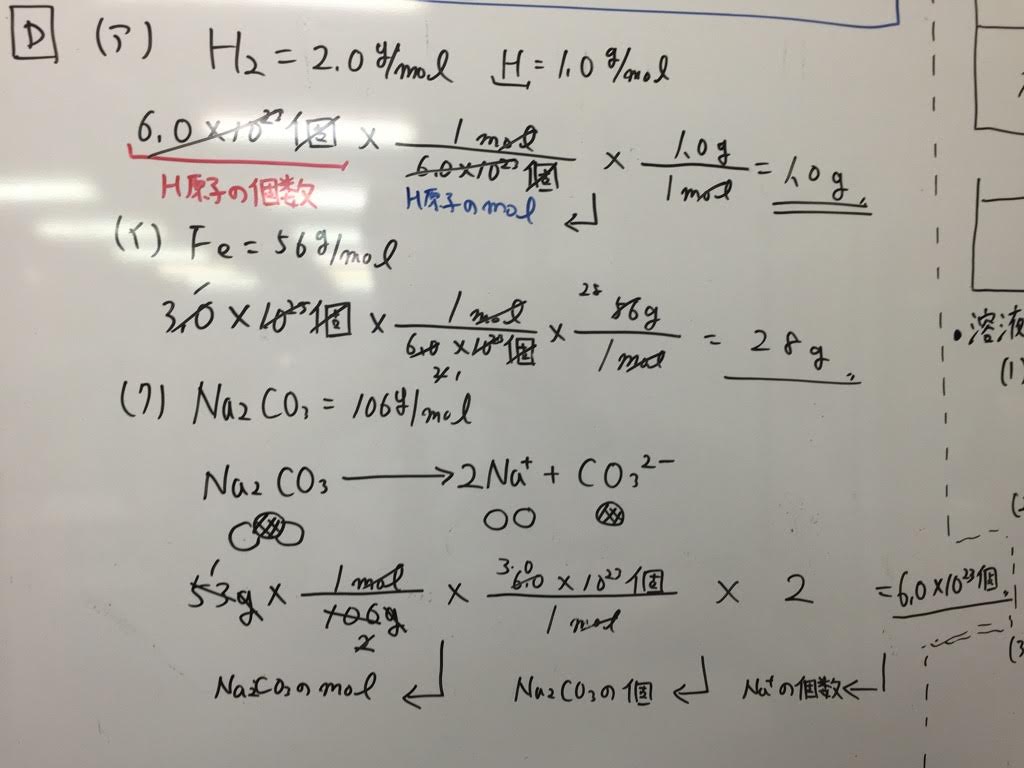 D (ア) H₂ = 2.0 g/mol H = 1.0 g/mol
6.0 × 10²³ 個 × 1 mol / 6.0 × 10²³ 個 × 1.0 g / 1 mol = 1.0 g
H原子の個数 H原子のmol
(イ) Fe = 56 g/mol
3.0 × 10²³ 個 × 1 mol / 6.0 × 10²³ 個 × 56 g / 1 mol = 28 g
28
2 1
(ウ) Na₂CO₃ = 106 g/mol
Na₂CO₃ → 2Na⁺ + CO₃²⁻
53 g × 1 mol / 106 g × 6.0 × 10²³ 個 / 1 mol × 2 = 6.0 × 10²³ 個
1 3.0
2
Na₂CO₃のmol Na₂CO₃の個 Na⁺の個数
・溶液
(1)
(2
(3